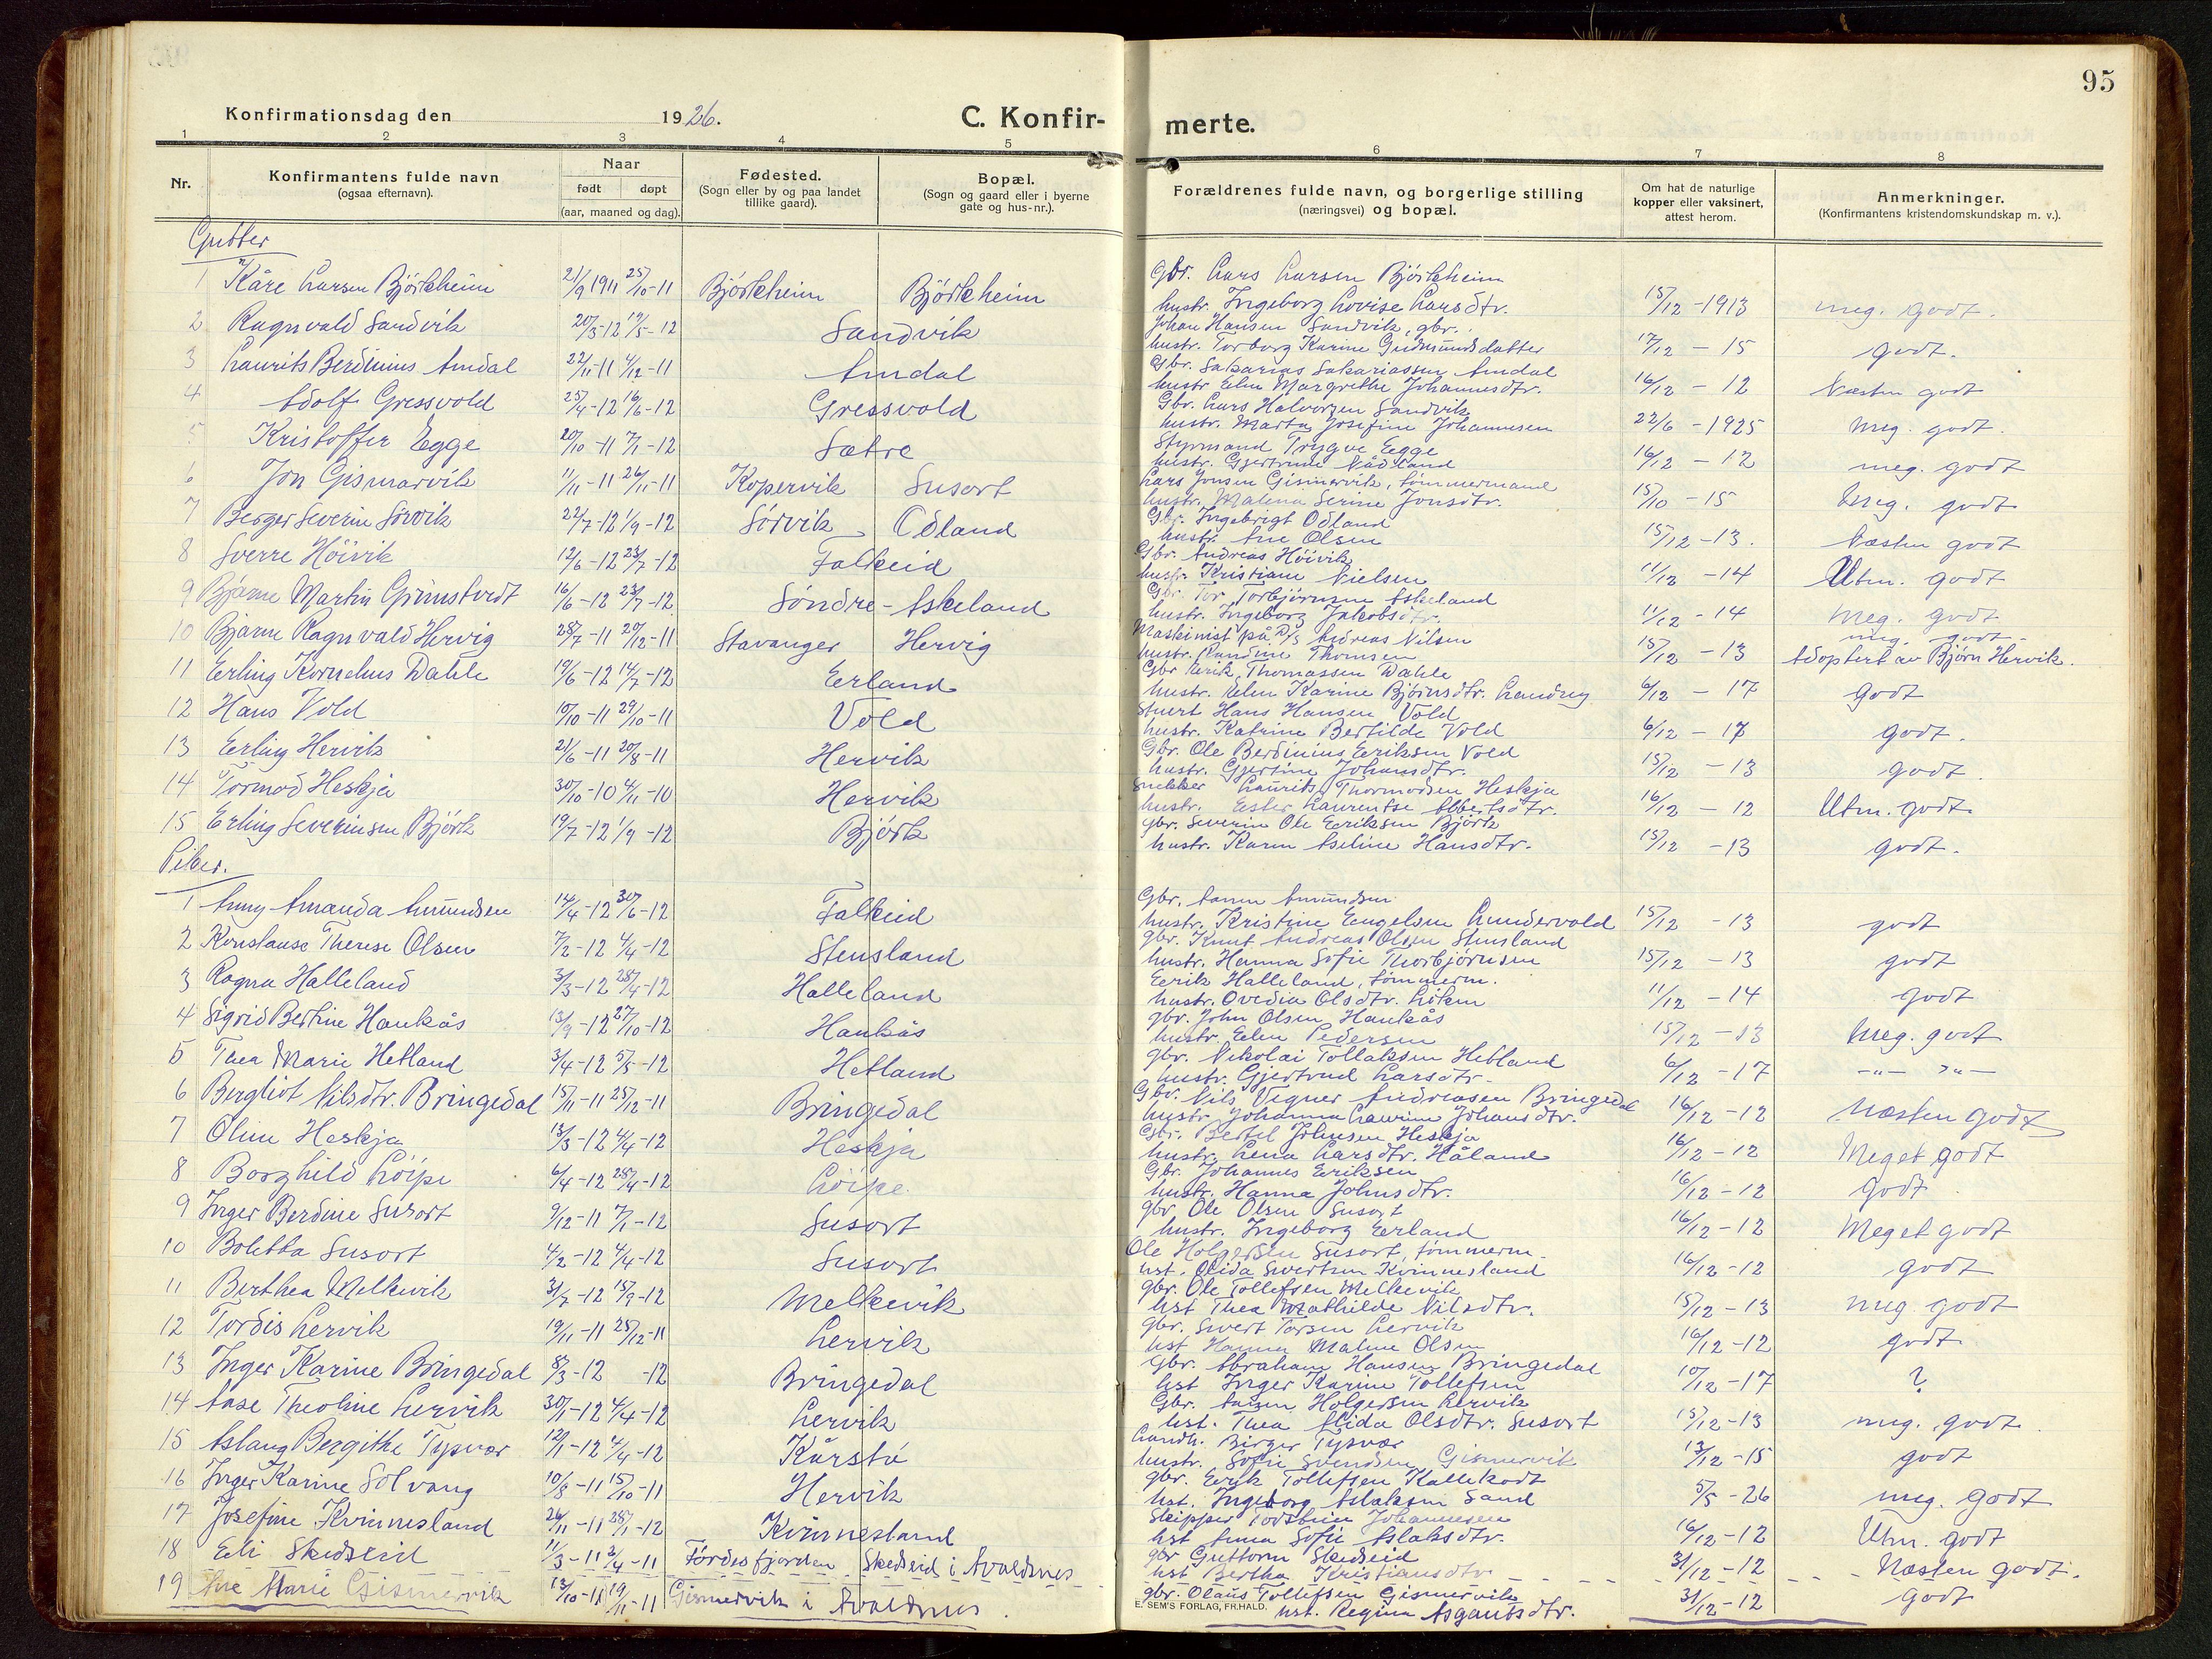 95
Konfirmationsdag den 1926.
C. Konfir-
merte.
1 2 3 4 5 6 7 8
Nr.
Konfirmantens fulde navn
(ogsaa efternavn).
Naar
født døpt
(aar, maaned og dag).
Fødested.
(Sogn eller by og paa landet
tillike gaard).
Bopæl.
(Sogn og gaard eller i byerne
gate og hus-nr.).
Forældrenes fulde navn, og borgerlige stilling
(næringsvei) og bopæl.
Om hat de naturlige
kopper eller vaksinert,
attest herom.
Anmerkninger.
(Konfirmantens kristendomskundskap m. v.).
Gutter
1 Kåre Larsen Björkheim 21/9 1911 25/10-11 Björkheim Björkheim
Gbr. Lars Larsen Björkheim
hustr. Ingeborg Lovise Larsdtr. 15/12-1913 meg. godt.
2 Ragnvald Sandvik 20/3-12 19/5-12 Sandvik
Johan Hansen Sandvik, gbr.
hustr. Torborg Karine Gudmundsdatter 17/12-15 godt.
3 Laurits Berdinius Amdal 22/11-11 4/12-11 Amdal
Gbr. Sakarias Sakariassen Amdal
hustr Elen Margrethe Johannesdtr. 16/12-12 Næsten godt
4 Adolf Gressvold 25/4-12 16/6-12 Gressvold
Gbr. Lars Halvorsen Sandvik
hustr. Marta Josefine Johannesen 22/6-1925 Meg. godt.
5 Kristoffer Egge 20/10-11 7/1-12 Sætre
Styrmand Trygve Egge
hustr. Gjertrine Nådland 16/12-12 meg. godt
6 Jon Gismarvik 11/11-11 26/11-11 Kopervik Susort
Lars Jonsen Gismervik, tømmermand
hustr. Malena Serine Jonsdtr. 15/10-15 Meg. godt
7 Berger Severin Sörvik 22/7-12 1/9-12 Sörvik Odland
Gbr. Ingebrigt Odland
hustr. Ane Olsen 15/12-13. Næsten godt
8 Sverre Höivik 12/6-12 23/7-12 Falkeid
Gbr. Andreas Höivik
hustr. Kristiane Nielsen 11/12-14 Utm. godt
9 Bjarne Martin Grimstvedt 16/6-12 23/7-12 Söndre-Askeland
Gbr. Tor Torbjörnsen Askeland
hustr. Ingeborg Jakobsdtr. 11/12-14 meg. godt
10 Bjarne Ragnvald Hervig 28/7-11 20/12-11 Stavanger Hervig
Maskinist på D/S Andreas Nilsen
hustr. Randine Thomsen 15/12-13 meg. godt.
Adoptert av Björn Hervik.
11 Erling Kornelius Dahle 19/6-12 14/7-12 Eerland
Gbr Eerik Thomassen Dahle
hustr. Elen Karine Bjørnsdtr. Landrug 6/12-17 godt
12 Hans Vold 10/10-11 29/10-11 Vold
Stuert Hans Hansen Vold
hustr. Katrine Bertilde Vold 6/12-17 godt.
13 Erling Hervik 21/6-11 20/8-11 Hervik
Gbr. Ole Berdinius Eeriksen Vold
hustr. Gjertine Johansdtr. 15/12-13 godt.
14 Tormod Heskja 30/10-10 4/11-10 Hervik
Snekker Laurits Thormodsen Heskja
hustr. Ester Laurentse Albertsdtr. 16/12-12 Utm. godt.
15 Erling Severinsen Björk 19/7-12 1/9-12 Björk
gbr. Severin Ole Eeriksen Björk
hustr. Karen Aseline Hansdtr. 15/12-13 godt.
Piker.
1 Anny Amanda Amundsen 14/4-12 30/6-12 Falkeid
Gbr. Aamen Amundsen
hustr. Kristine Eengelsen Lundervold 15/12-13 godt
2 Konstanse Therese Olsen 7/2-12 4/4-12 Stensland
gbr. Knut Andreas Olsen Stensland
hustr. Hanna Sofie Thorbjørnsen 15/12-13 godt
3 Ragna Halleland 3/3-12 28/4-12 Halleland
Eerik Halleland, tømmerm.
hustr. Ovedia Olsdtr. Løken 11/12-14 godt
4 Sigrid Bertine Haukås 13/9-12 27/10-12 Haukås
gbr. John Olsen Haukås
hustr. Eelen Pedersen 15/12-13 Meg. godt
5 Thea Marie Hetland 3/4-12 5/5-12 Hetland
gbr. Nikolai Tollaksen Hetland
hustr. Gjertrud Larsdtr. 6/12-17 -"- -"-
6 Bergliot Nilsdtr. Bringedal 15/11-11 25/12-11 Bringedal
Gbr. Nils Vegner Andreasen Bringedal
hustr. Johanna Laurine Johansdtr. 16/12-12 Næsten godt
7 Oline Heskja 13/3-12 4/4-12 Heskja
Gbr. Bertel Johnsen Heskja
hustr. Lena Larsdtr. Håland 16/12-12 Meget godt
8 Borghild Löipe 6/4-12 28/4-12 Löipe
Gbr. Johannes Eeriksen
hustr. Hanna Johnsdtr. 16/12-12 Godt
9 Inger Berdine Susort 9/12-11 7/1-12 Susort
gbr Ole Olsen Susort
hustr. Ingeborg Eerland 16/12-12 Meget godt
10 Boletta Susort 4/2-12 4/4-12 Susort
Ole Holgersen Susort, tømmerm.
hst. Olida Sivertsen Kvinnesland 16/12-12 godt
11 Berthea Melkevik 31/7-12 15/9-12 Melkevik
gbr. Ole Tollefsen Melkevik
hst Thea Mathilde Nilsdtr. 15/12-13 meg godt
12 Tordis Lervik 19/11-11 25/12-11 Lervik
gbr. Sivert Torsen Lervik
hst Hanna Malene Olsen 16/12-12 godt
13 Inger Karine Bringedal 8/3-12 -12 Bringedal
gbr. Abraham Hansen Bringedal
hst Inger Karine Tollefsen 10/12-17 ?
14 Aase Theoline Lervik 30/1-12 4/4-12 Lervik
Gbr. Aamen Holgersen Lervik
hst. Thea Alida Olsdtr. Susort 15/12-13 meg. godt
15 Aslaug Bergithe Tysvær 12/1-12 4/4-12 Kårstö
Landh. Birger Tysvær
hustr. Sofie Svendsen Gismervik 13/12-15 godt
16 Inger Karine Solvang 10/8-11 15/10-11 Hervik
gbr. Eerik Tollefsen Kallekodt
hst. Ingeborg Aslaksen Sand 5/5-26 meg. godt
17 Josefine Kvinnesland 26/11-11 28/1-12 Kvinnesland
Skipper Torstein Johannesen
hst Anna Sofie Aslaksdtr. 16/12-12 Utm. godt
18 Eli Skedseid 11/3-11 2/4-11 Fördesfjorden Skedseid i Avaldsnes
gbr Guttorm Skedseid
hst Bertha Kristiansdtr 31/12-12 Næsten godt.
19 Ane Marie Gismervik 13/10-11 19/11-11 Gismervik i Avaldsnes.
gbr. Olaus Tollefsen Gismervik
hst. Regina Asgautsdtr. 31/12-12 Godt
E. SEM'S FORLAG, FR.HALD.